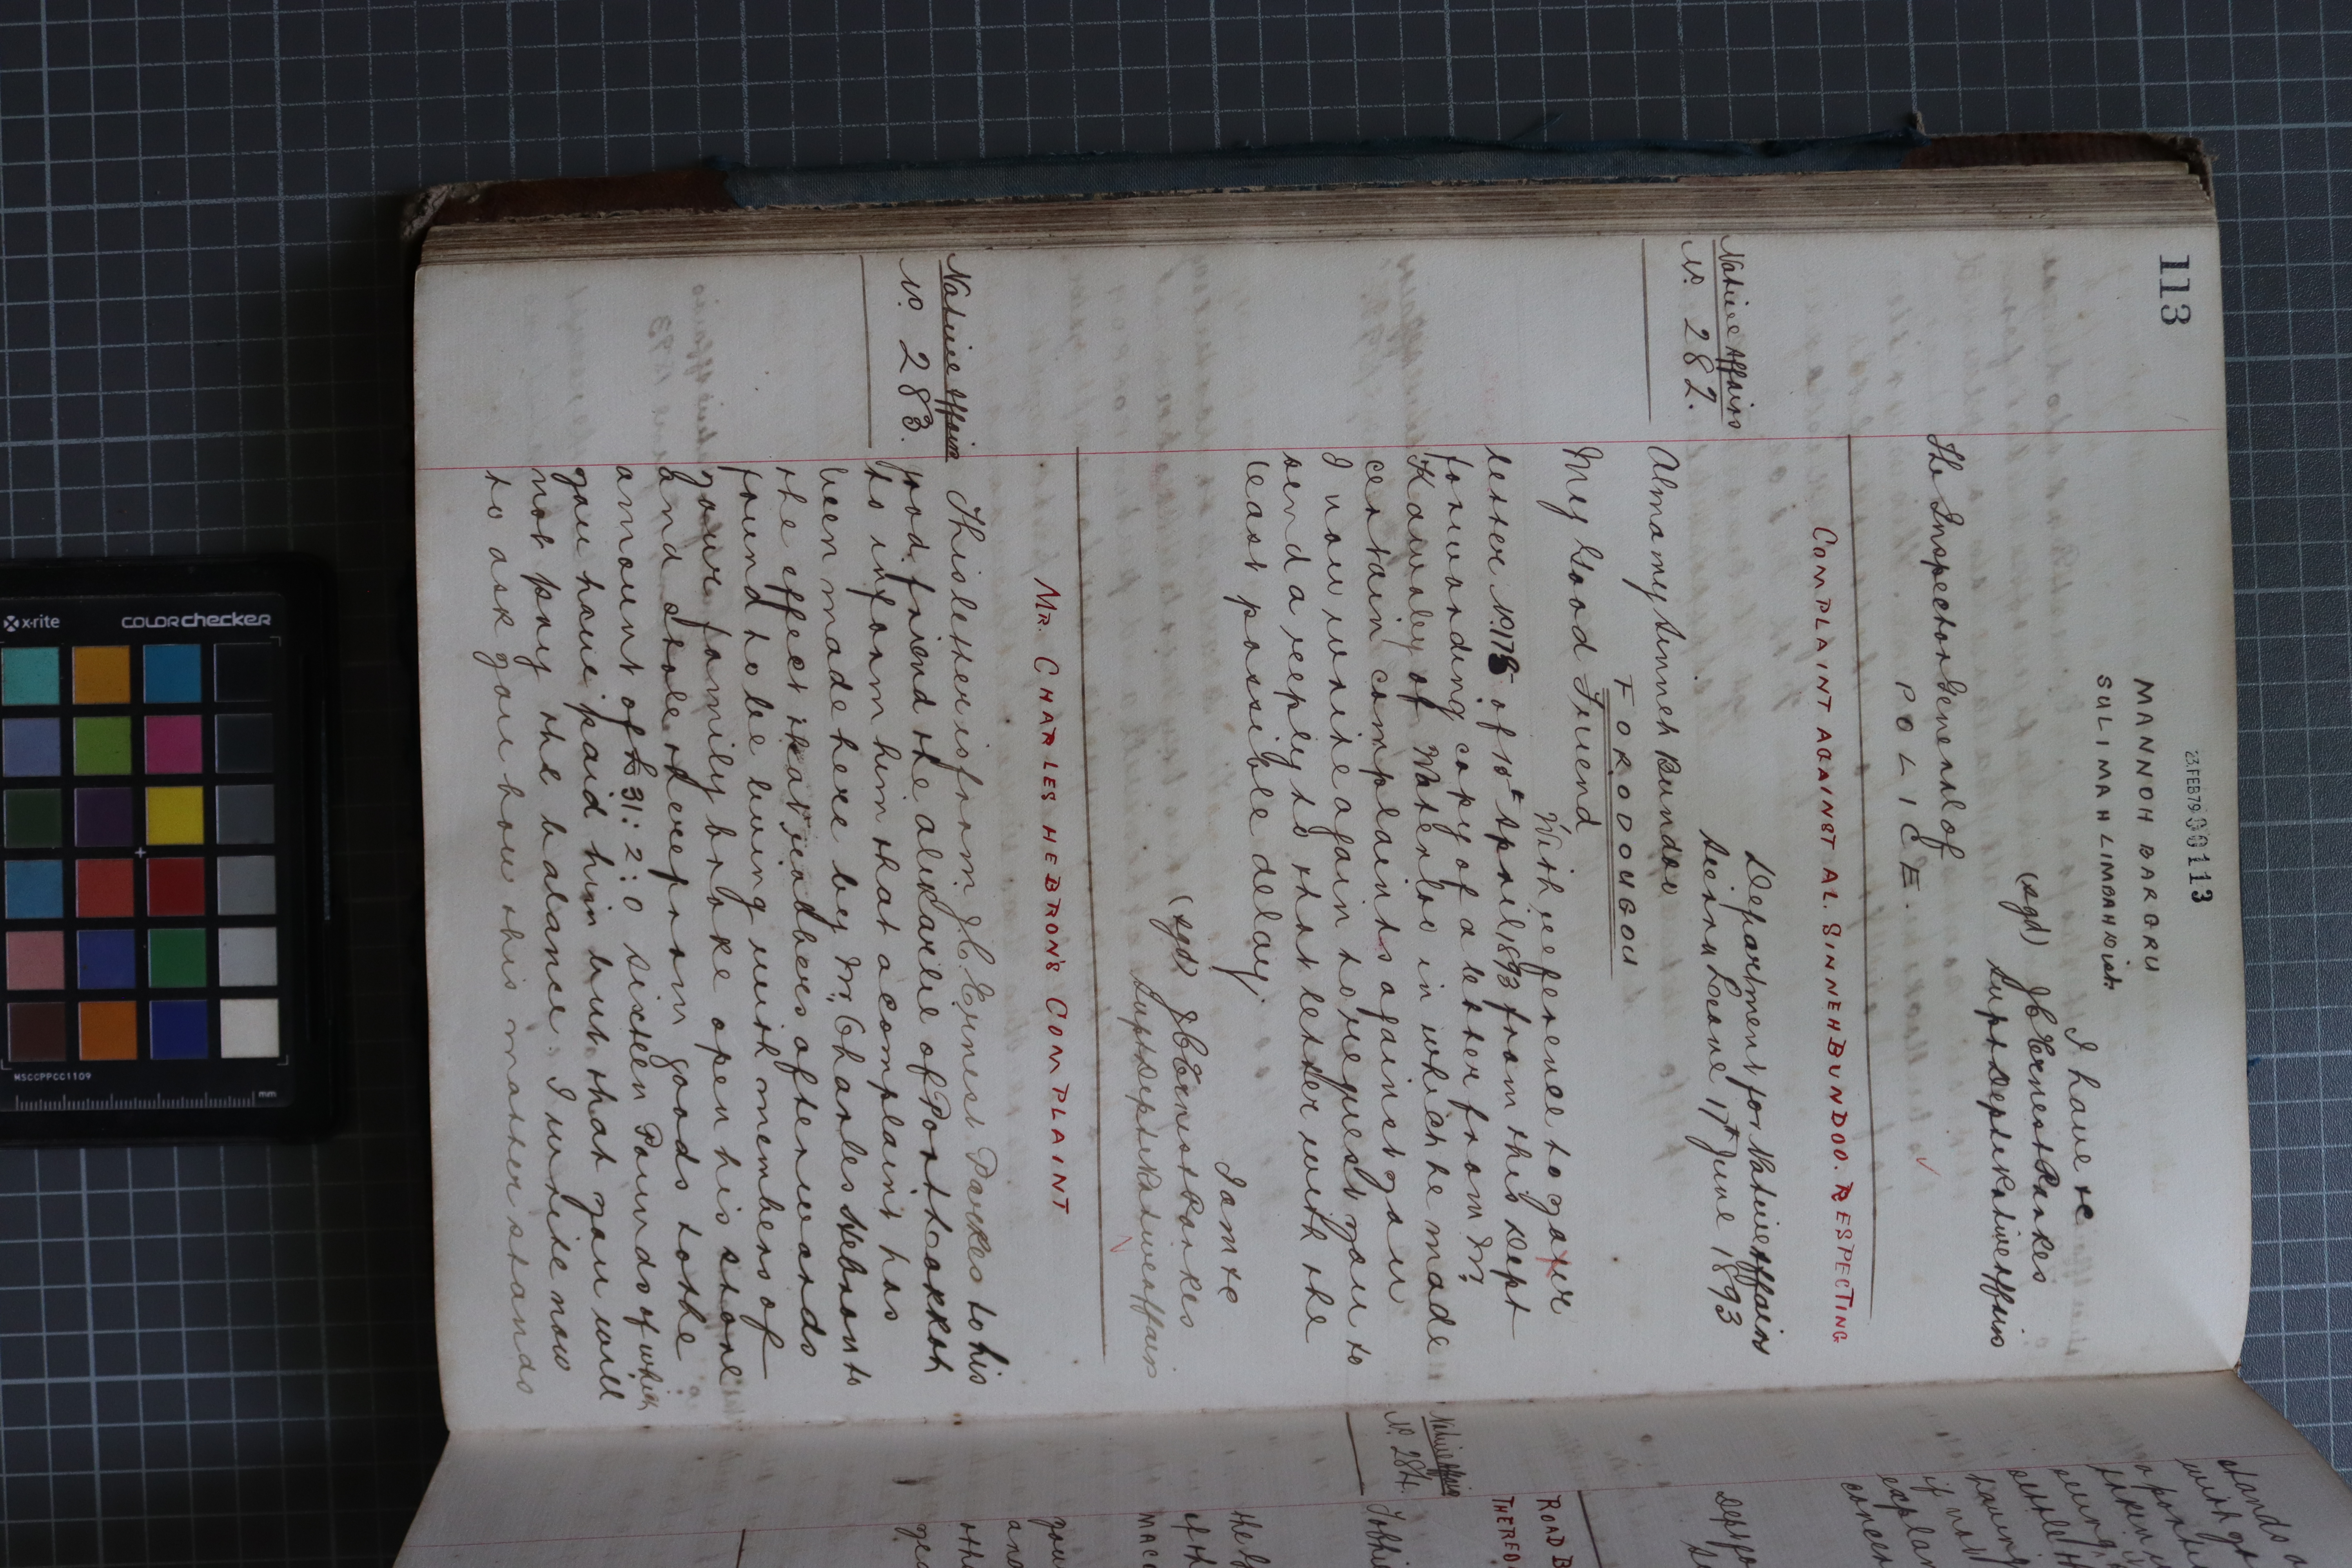 113
23.FEB79 000113
MANNOH BARGRU
SULIMAH LIMBAH Dist.
I have &c
(sgd) J C Ernest Parkes
Supt Dept Native Affairs
The Inspector General of
POLICE.
COMPLAINT AGAINST AL. SINNEH BUNDOO. RESPECTING
Native Affairs
No. 282.
Department for Native Affairs
Sierra Leone 17th June 1893
Almamy Sinneh Bundoo
FORODOUGOU
My Good Friend
With reference to your
letter No. 178 of 10th April 1893 from this Dept
forwarding copy of a letter from Mr.
Hawoley of Waterloo in which he made
certain complaints against you
I now write again to request you to
send a reply to that letter with the
least possible delay.
I am &c
(sgd) J C Ernest Parkes
Supt Dept Native Affairs
MR. CHARLES HEBRON'S COMPLAINT
Native Affairs
No. 283.
This letter is from J. C. Ernest Parkes to his
good friend the Alikarlie of Port Lokkoh
to inform him that a complaint has
been made here by Mr. Charles Hebron to
the effect that readbers afterwards
found to be living with members of
your family broke open his store
and stole therefrom goods to the
amount of £31:2:0 sixteen Pounds of which
you have paid him but that you will
not pay the balance. I write now
to ask you how this matter stands
Native Affairs
No. 284.
ROAD B
THERED
stands
with yo
explan
concer